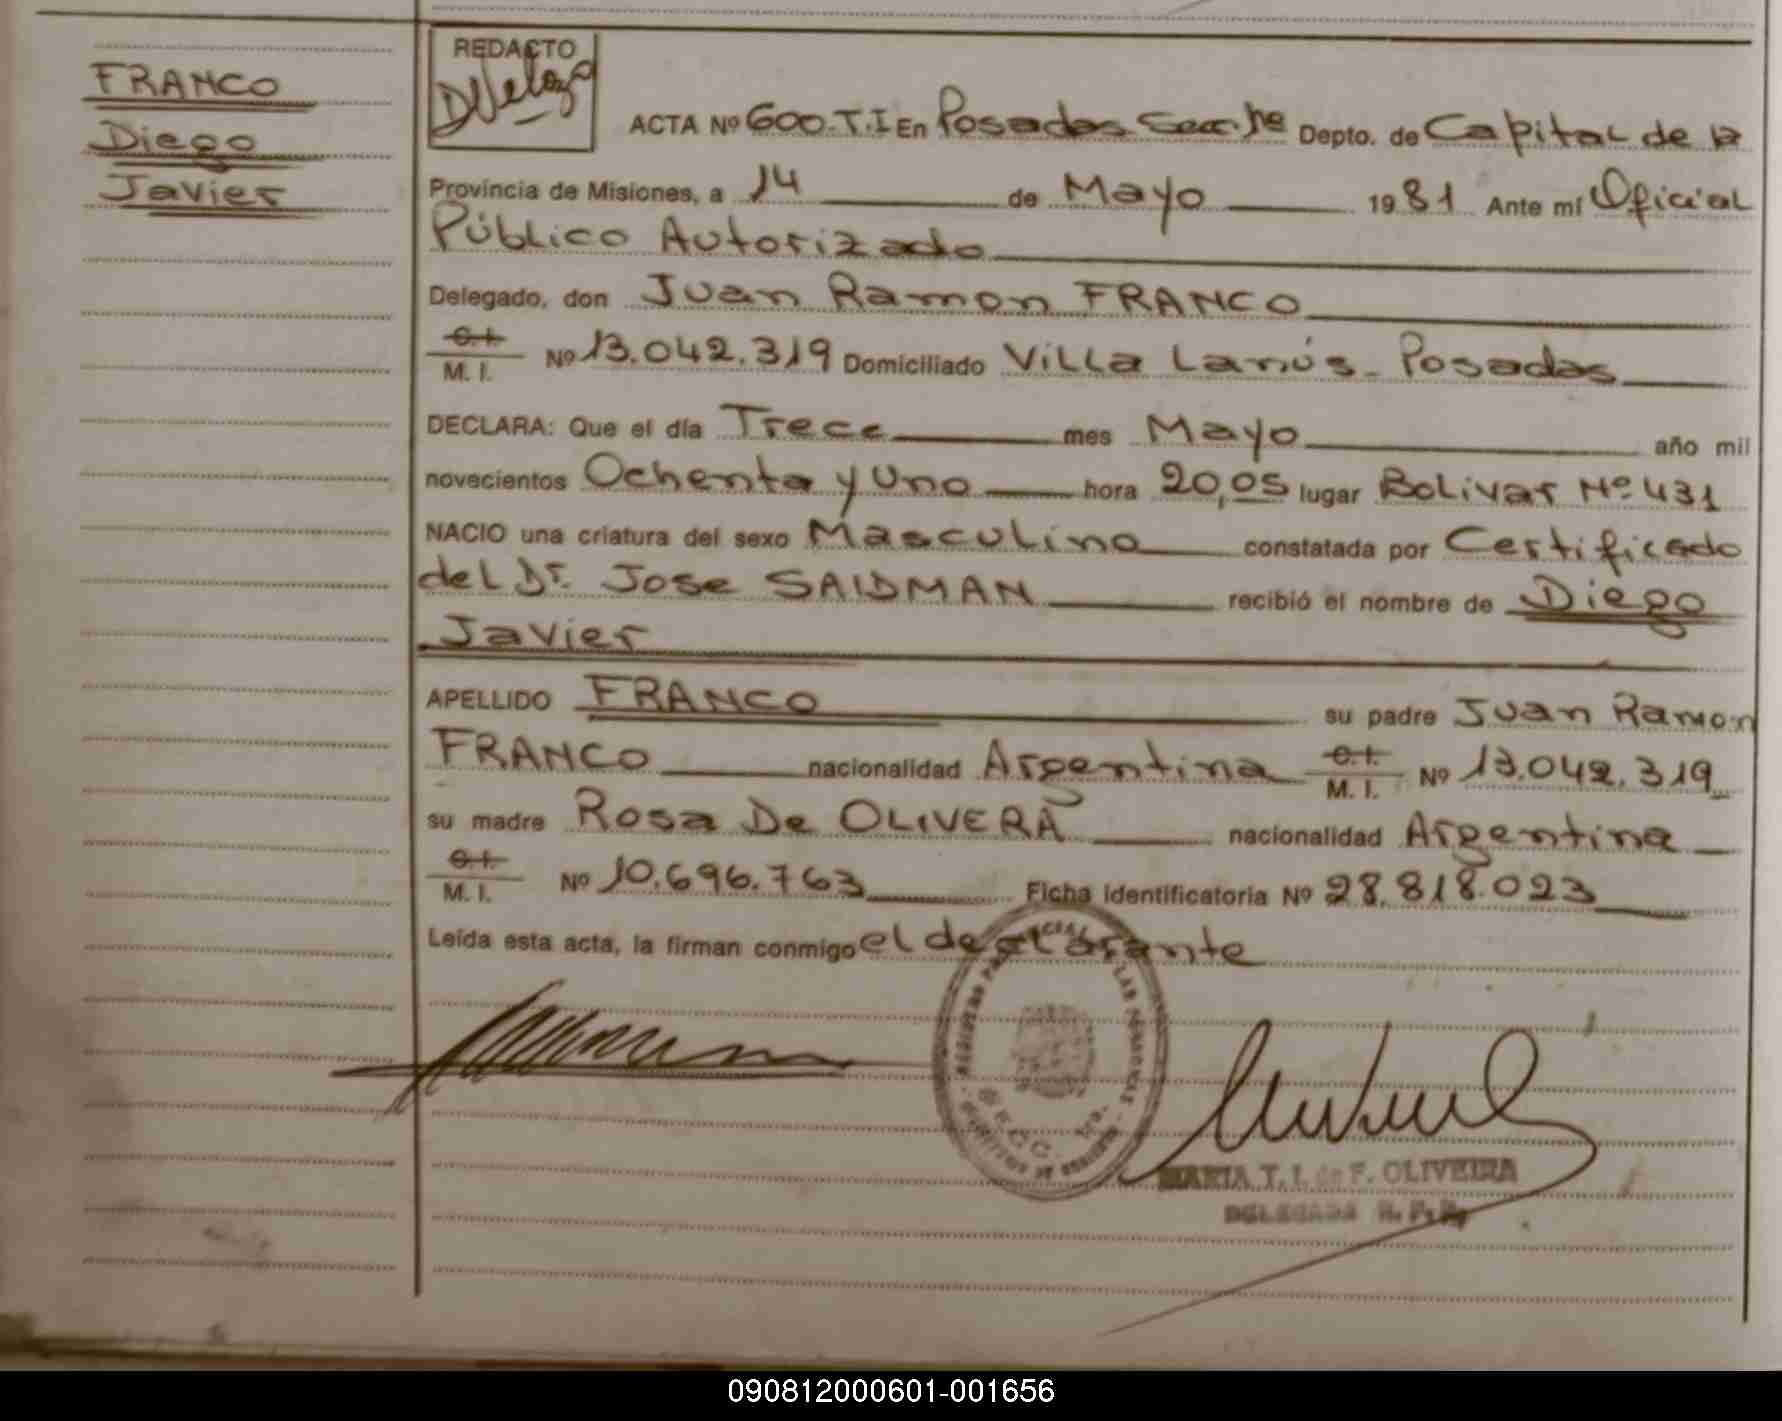 FRANCO
Diego
Javier
REDACTO
ACTA Nº 600.T.I En Posadas Secc. 1ra Depto. de Capital de la
Provincia de Misiones, a 14 de Mayo 1981 Ante mí Oficial
Público Autorizado
Delegado, don Juan Ramon FRANCO
C.I.
M. I. Nº 13.042.319 Domiciliado Villa Lanús - Posadas
DECLARA: Que el día Trece mes Mayo año mil
novecientos Ochenta y Uno hora 20,05 lugar Bolivar Nº 431
NACIO una criatura del sexo Masculino constatada por Certificado
del Dr. Jose SAIDMAN recibió el nombre de Diego
Javier
APELLIDO FRANCO su padre Juan Ramon
FRANCO nacionalidad Argentina C.I. M. I. Nº 13.042.319
su madre Rosa De OLIVERA nacionalidad Argentina
C.I.
M. I. Nº 10.696.763 Ficha identificatoria Nº 28.818.023
Leída esta acta, la firman conmigo el declarante
REGISTRO PROVINCIAL DE LAS PERSONAS
MARIA T. I. de F. OLIVEIRA
DELEGADA R. P. P.
090812000601-001656